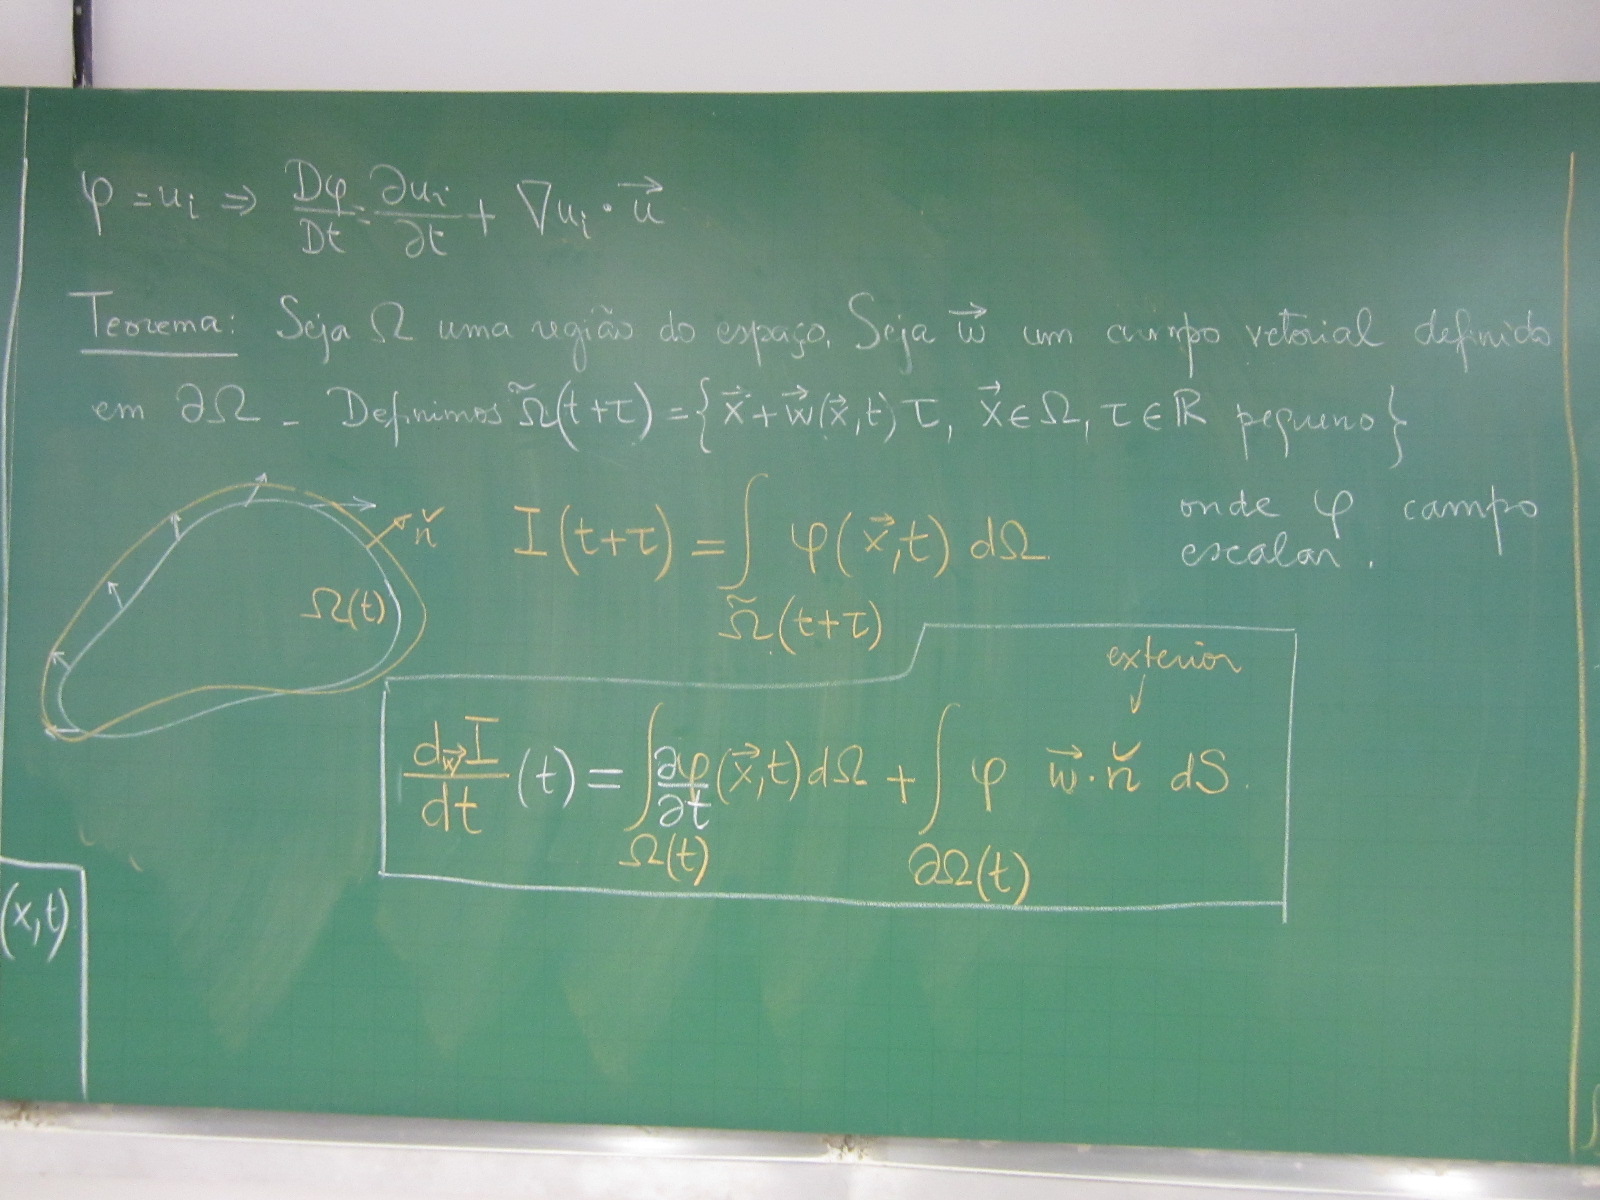 φ = u_i ⇒ Dφ/Dt = ∂u_i/∂t + ∇u_i · u⃗
Teorema: Seja Ω uma região do espaço. Seja w⃗ um campo vetorial definido
em ∂Ω. Definimos Ω̃(t+τ) = {x⃗ + w⃗(x⃗,t) τ, x⃗ ∈ Ω, τ ∈ ℝ pequeno}
ň
Ω(t)
I(t+τ) = ∫_{Ω̃(t+τ)} φ(x⃗,t) dΩ.
onde φ campo
escalar.
exterior
↓
d_w⃗ I/dt (t) = ∫_{Ω(t)} ∂φ/∂t (x⃗,t) dΩ + ∫_{∂Ω(t)} φ w⃗·ň dS.
(x,t)